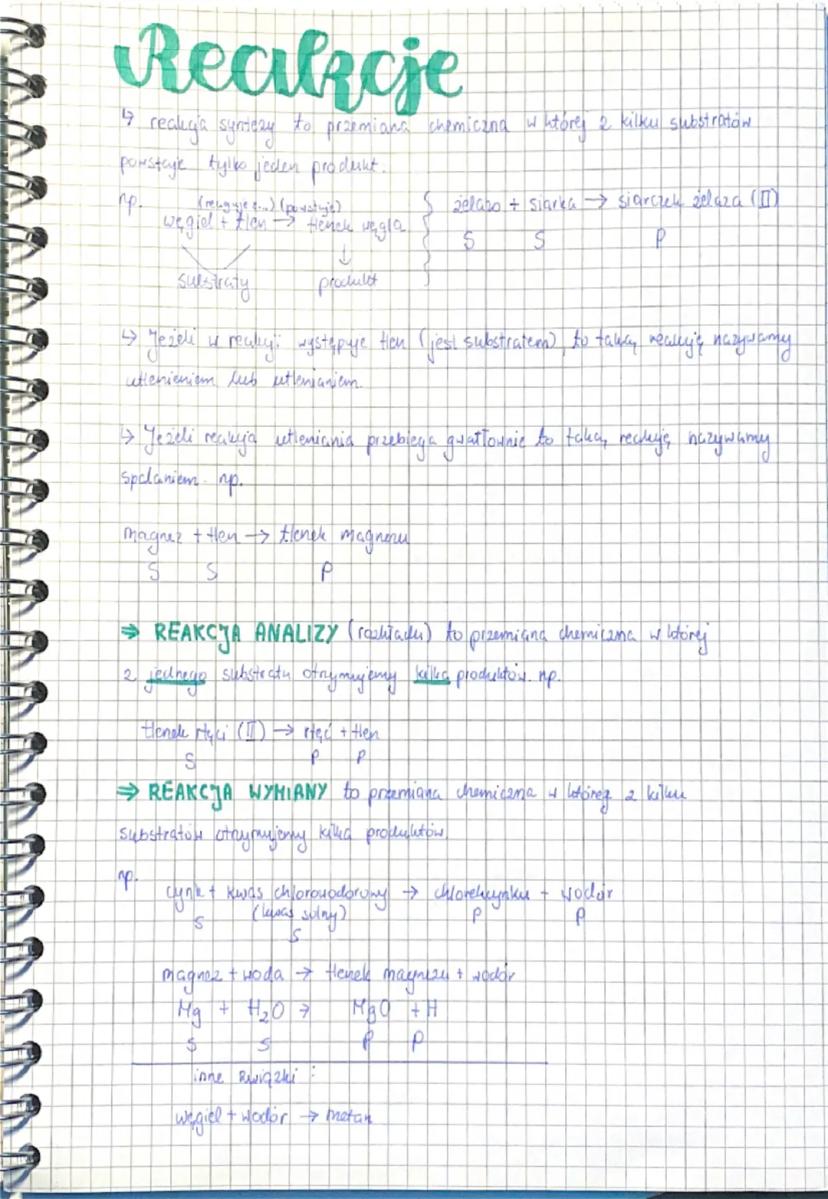 Reakcje
↳ reakcja syntezy to przemiana chemiczna w której z kilku substratów
powstaje tylko jeden produkt.
np. (reaguje z...) (powstaje)
węgiel + tlen → tlenek węgla
substraty produkt
żelazo + siarka → siarczek żelaza (II)
S S P
↳ Jeżeli w reakcji występuje tlen (jest substratem), to taką reakcję nazywamy
utlenieniem lub utlenianiem.
↳ Jeżeli reakcja utleniania przebiega gwałtownie to taką reakcję nazywamy
spalaniem. np.
magnez + tlen → tlenek magnezu
S S P
⇒ REAKCJA ANALIZY (rozkładu) to przemiana chemiczna w której
z jednego substratu otrzymujemy kilka produktów. np.
tlenek rtęci (II) → rtęć + tlen
S P P
⇒ REAKCJA WYMIANY to przemiana chemiczna w której z kilku
substratów otrzymujemy kilka produktów.
np.
cynk + kwas chlorowodorowy → chlorek cynku + wodór
S (kwas solny) P P
S
magnez + woda → tlenek magnezu + wodór
Mg + H₂O → MgO + H
S S P P
inne związki:
węgiel + wodór → metan